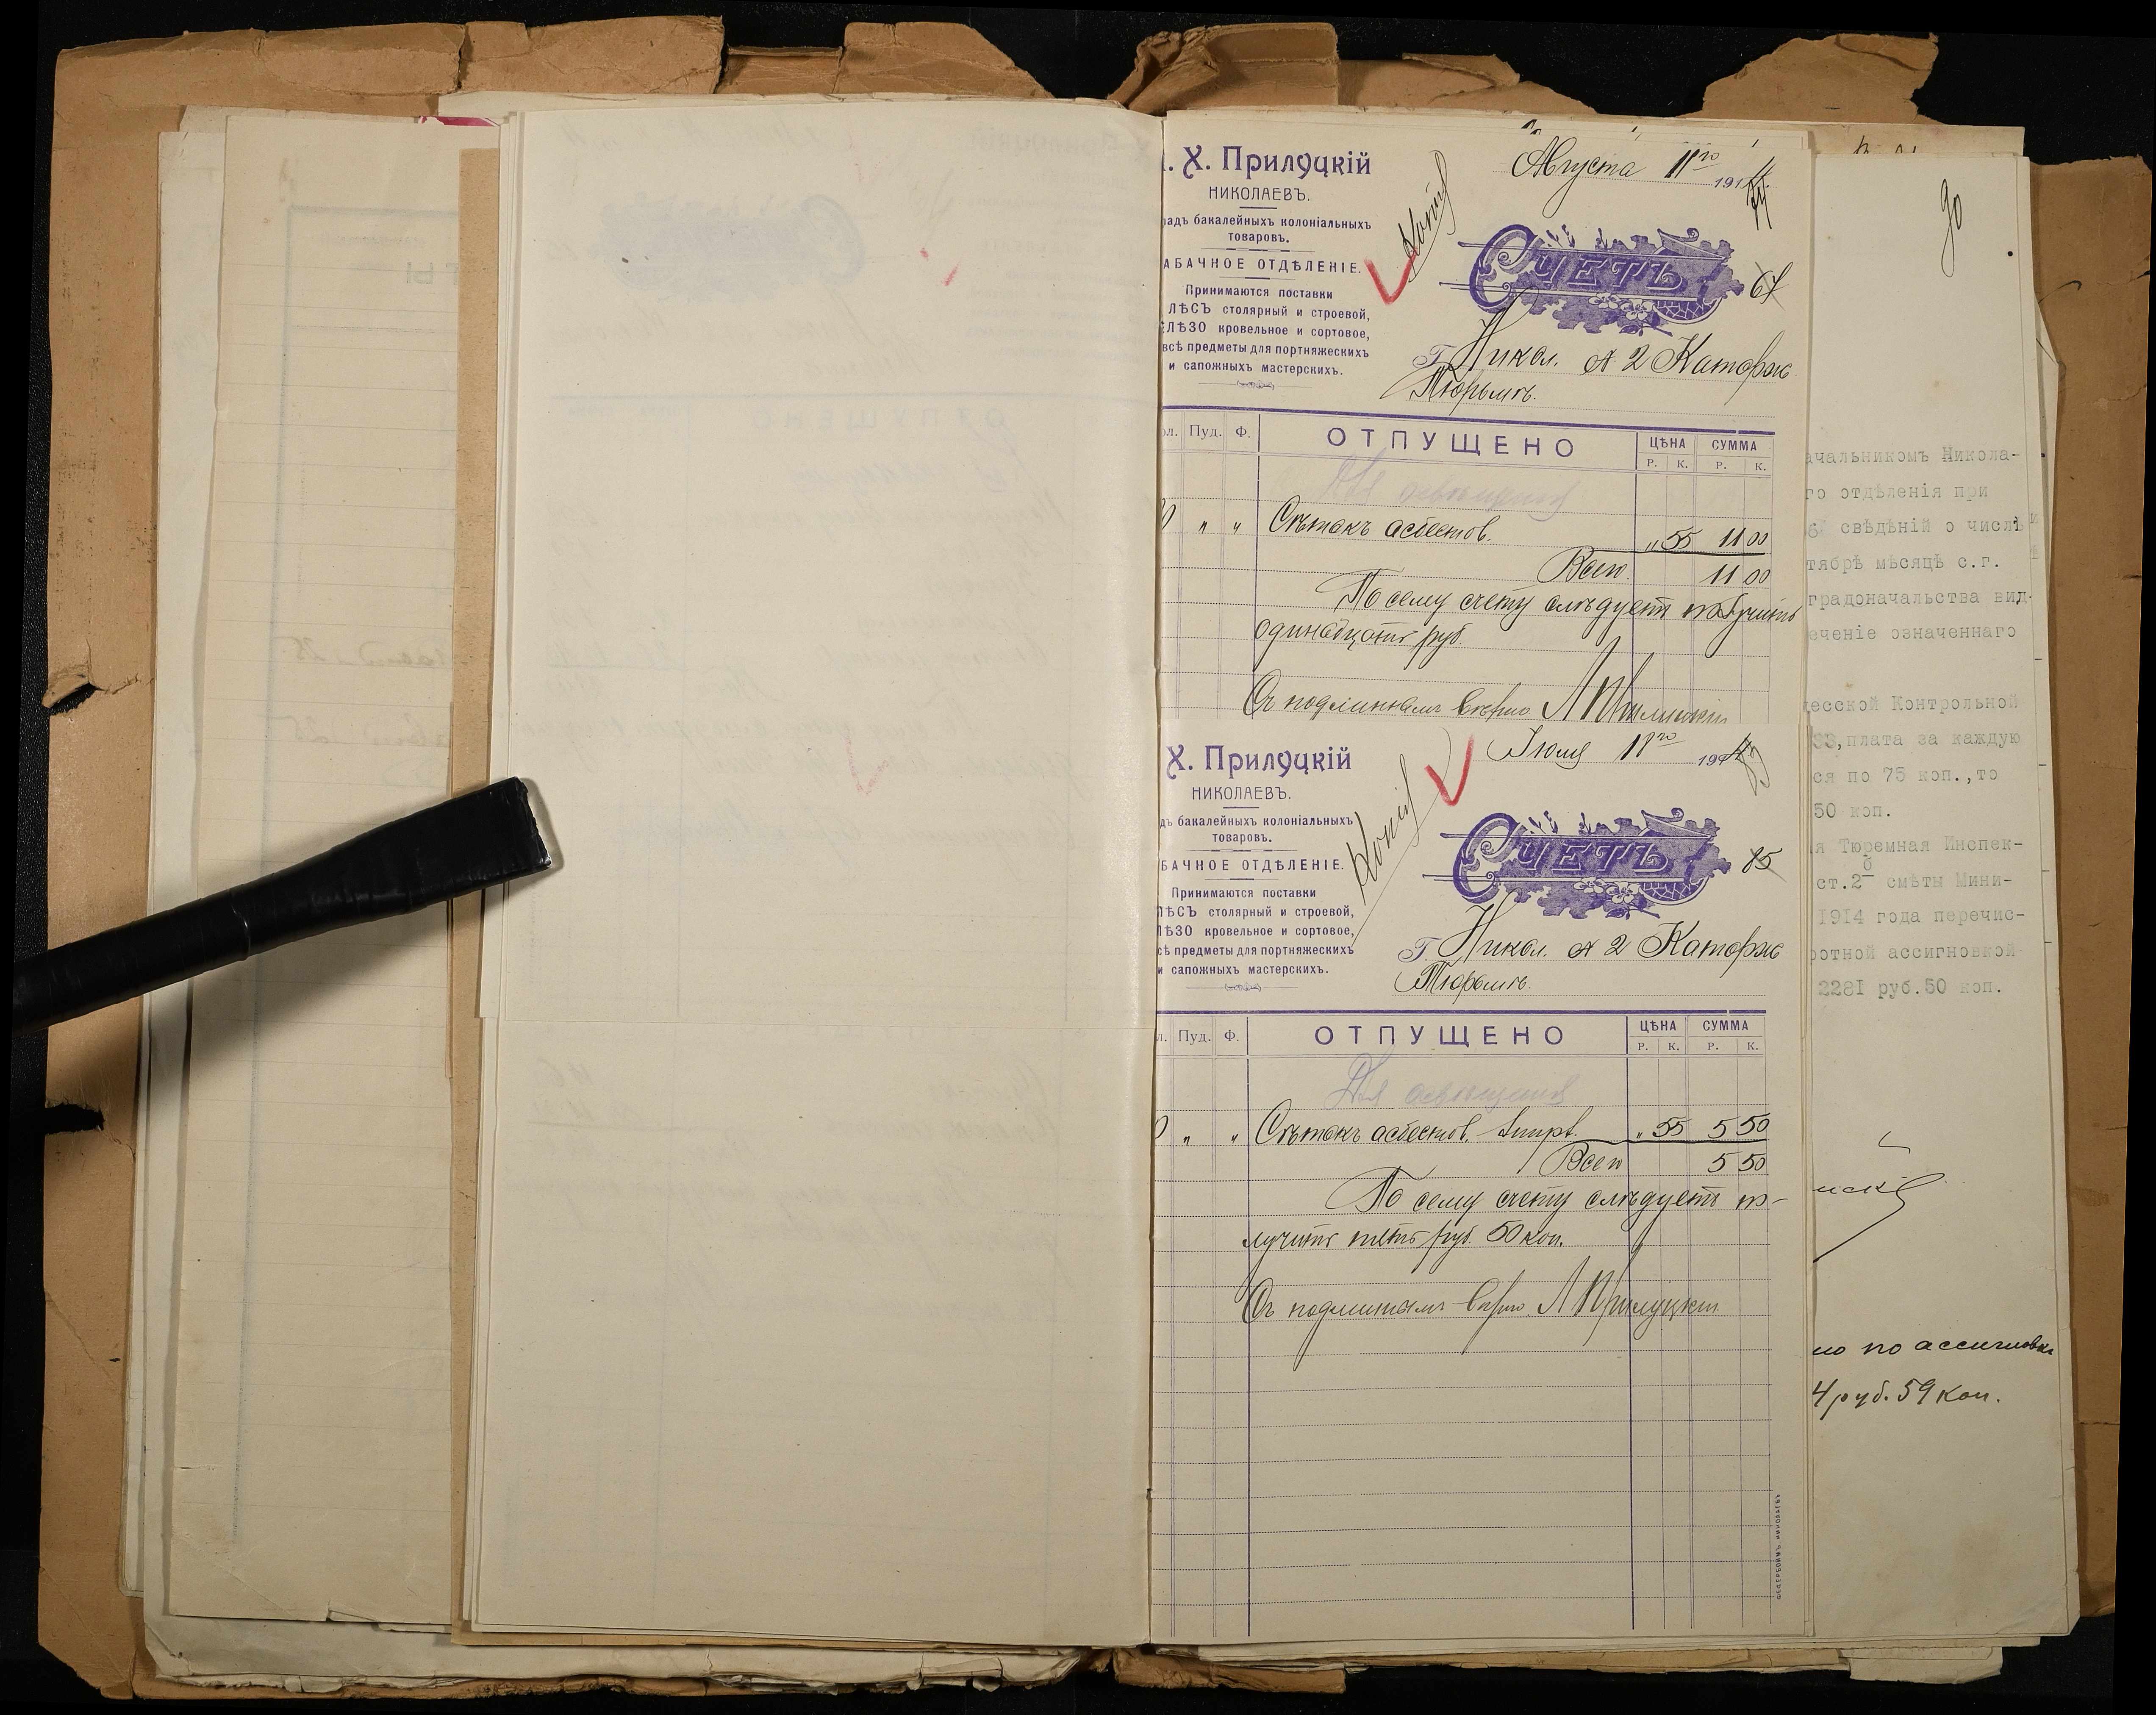 Х. Прилуцкій
НИКОЛАЕВЪ.
бакалейныхъ колоніальныхъ
товаровъ.
АБАЧНОЕ ОТДѢЛЕНІЕ.
Принимаются поставки
ЛѢСЪ столярный и строевой,
ЛѢЗО кровельное и сортовое,
всѣ предметы для портняжескихъ
и сапожныхъ мастерскихъ.
Копія
Августа 11го 1914
СЧЕТЪ
64
Г. Никол. № 2 Каторж
Тюрьмѣ.
Пуд. Ф. ОТПУЩЕНО ЦѢНА СУММА
Р. К. Р. К.
Для освѣщенія
" " Сѣтокъ асбестов. " 55 11 00
Всего 11 00
По сему счету слѣдуетъ получить
одинадцать руб.
Съ подлиннымъ вѣрно Л Прилуцкій
Х. Прилуцкій
НИКОЛАЕВЪ.
бакалейныхъ колоніальныхъ
товаровъ.
БАЧНОЕ ОТДѢЛЕНІЕ.
Принимаются поставки
ЛѢСЪ столярный и строевой,
ЛѢЗО кровельное и сортовое,
сѣ предметы для портняжескихъ
и сапожныхъ мастерскихъ.
Копія
Іюля 11го 191
СЧЕТЪ
85
Г. Никол. № 2 Каторж
Тюрьмѣ.
Пуд. Ф. ОТПУЩЕНО ЦѢНА СУММА
Р. К. Р. К.
Для освѣщенія
" " Сѣтокъ асбестов. " 55 5 50
Всего 5 50
По сему счету слѣдуетъ по-
лучить пять руб. 50 коп.
Съ подлиннымъ вѣрно Л Прилуцкій
90
ачальникомъ Никола-
го отдѣленія при
свѣдѣній о числѣ
тябрѣ мѣсяцѣ с.г.
градоначальства вид-
еченіе означеннаго
есской Контрольной
33, плата за каждую
ся по 75 коп., то
50 коп.
я Тюремная Инспек-
ст.2 б смѣты Мини-
1914 года перечис-
ротной ассигновкой
2281 руб.50 коп.
но по ассигновкѣ
4 руб. 59 коп.